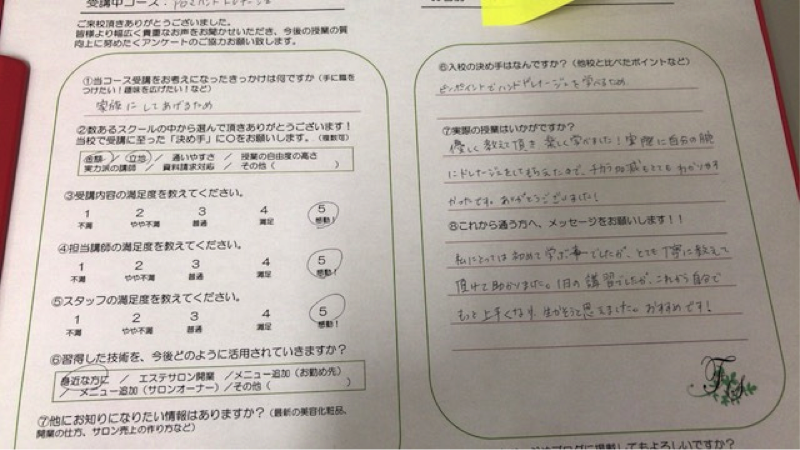 受講中コース：
ご来校頂きありがとうございました。
皆様より幅広く貴重なお声をお聞かせいただき、今後の授業の質
向上に努めたくアンケートのご協力お願い致します。
①当コース受講をお考えになったきっかけは何ですか（手に職を
つけたい！趣味を広げたい！など）
家族にしてあげるため
②数あるスクールの中から選んで頂きありがとうございます！
当校で受講に至った「決め手」に〇をお願いします。（複数可）
金額 ／ 立地 ／ 通いやすさ ／ 授業の自由度の高さ
実力派の講師 ／ 資料請求対応 ／ その他（ ）
③受講内容の満足度を教えてください。
1 2 3 4 5
不満 やや不満 普通 満足 感動！
④担当講師の満足度を教えてください。
1 2 3 4 5
不満 やや不満 普通 満足 感動！
⑤スタッフの満足度を教えてください。
1 2 3 4 5
不満 やや不満 普通 満足 感動！
⑥習得した技術を、今後どのように活用されていきますか？
身近な方に ／ エステサロン開業 ／メニュー追加（お勤め先）
／メニュー追加（サロンオーナー）／その他（
⑦他にお知りになりたい情報はありますか？（最新の美容化粧品、
開業の仕方、サロン売上の作り方など）
⑥入校の決め手はなんですか？（他校と比べたポイントなど）
ピンポイントでハンドドレナージュを学べるため
⑦実際の授業はいかがですか？
優しく教えて頂き楽しく学べました！実際に自分の腕
にドレナージュをしてもらえたので、チカラ加減もとてもわかりやす
かったです。ありがとうございました！
⑧これから通う方へ、メッセージをお願いします！！
私にとっては初めて学ぶ事でしたが、とても丁寧に教えて
頂けて助かりました。1日の講習でしたが、これから自分で
もっと上手くなり、生かそうと思えました。おすすめです！
ブログに掲載してもよろしいですか？